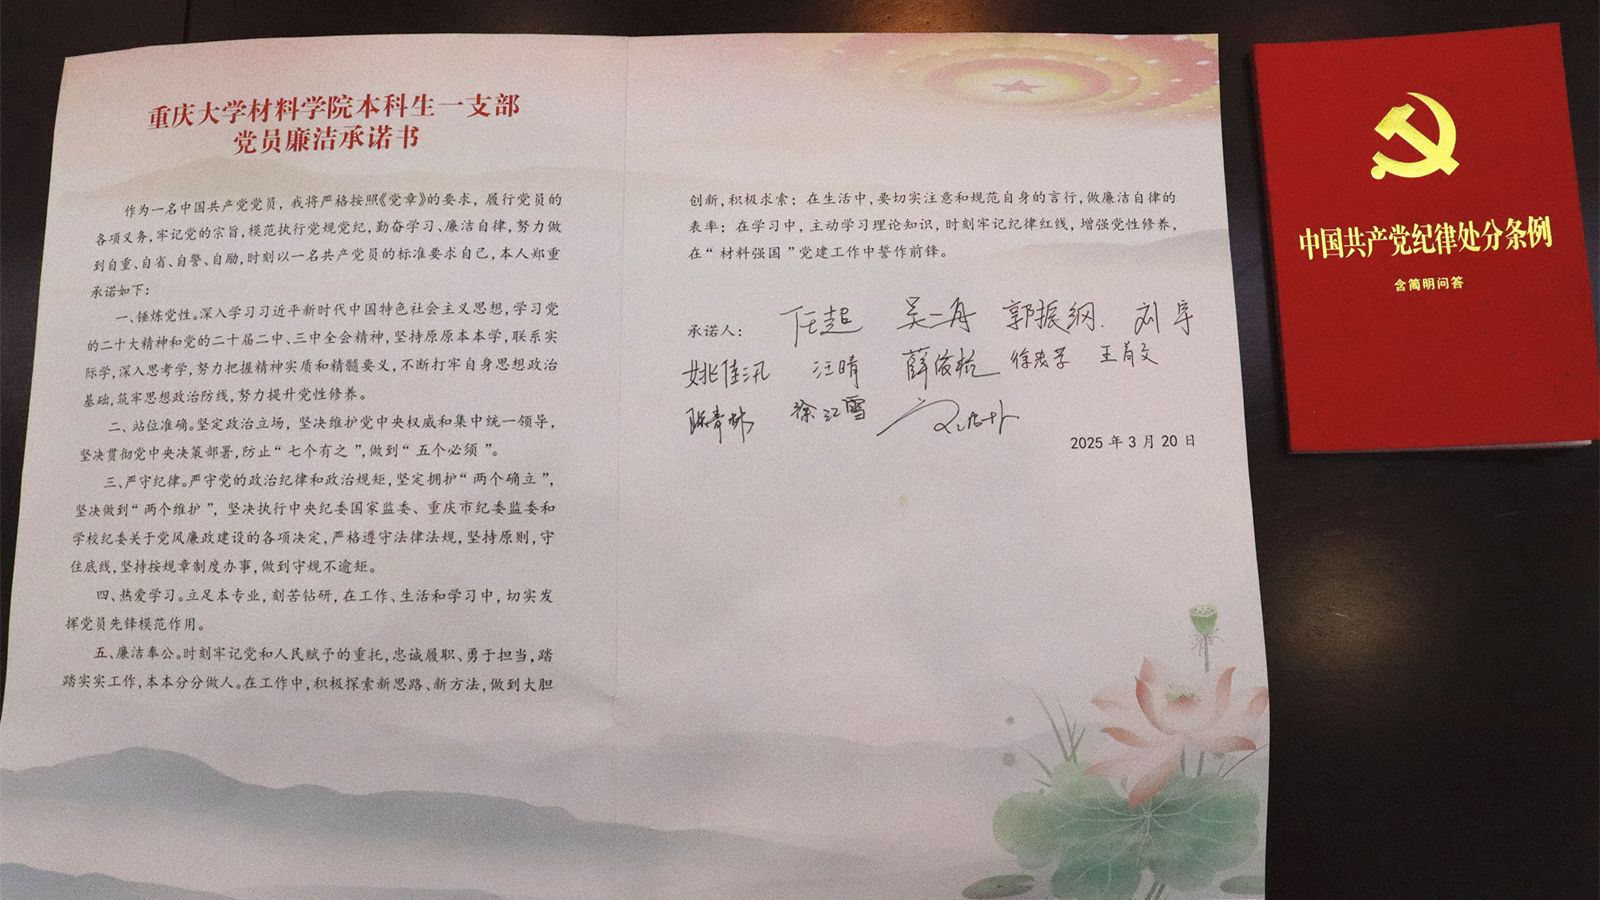 重庆大学材料学院本科生一支部
党员廉洁承诺书
作为一名中国共产党党员，我将严格按照《党章》的要求，履行党员的
各项义务，牢记党的宗旨，模范执行党规党纪，勤奋学习、廉洁自律，努力做
到自重、自省、自警、自励，时刻以一名共产党员的标准要求自己，本人郑重
承诺如下：
一、锤炼党性。深入学习习近平新时代中国特色社会主义思想，学习党
的二十大精神和党的二十届二中、三中全会精神，坚持原原本本学，联系实
际学，深入思考学，努力把握精神实质和精髓要义，不断打牢自身思想政治
基础，筑牢思想政治防线，努力提升党性修养。
二、站位准确。坚定政治立场，坚决维护党中央权威和集中统一领导，
坚决贯彻党中央决策部署，防止“七个有之”，做到“五个必须”。
三、严守纪律。严守党的政治纪律和政治规矩，坚定拥护“两个确立”，
坚决做到“两个维护”，坚决执行中央纪委国家监委、重庆市纪委监委和
学校纪委关于党风廉政建设的各项决定，严格遵守法律法规，坚持原则，守
住底线，坚持按规章制度办事，做到守规不逾矩。
四、热爱学习。立足本专业，刻苦钻研，在工作、生活和学习中，切实发
挥党员先锋模范作用。
五、廉洁奉公。时刻牢记党和人民赋予的重托，忠诚履职、勇于担当，踏
踏实实工作，本本分分做人。在工作中，积极探索新思路、新方法，做到大胆
创新，积极求索；在生活中，要切实注意和规范自身的言行，做廉洁自律的
表率；在学习中，主动学习理论知识，时刻牢记纪律红线，增强党性修养，
在“材料强国”党建工作中誓作前锋。
承诺人： 任超 吴二丹 郭振纲 刘宇
姚佳汛 汪晴 王肖文
徐江雪
2025年3月20日
中国共产党纪律处分条例
含简明问答